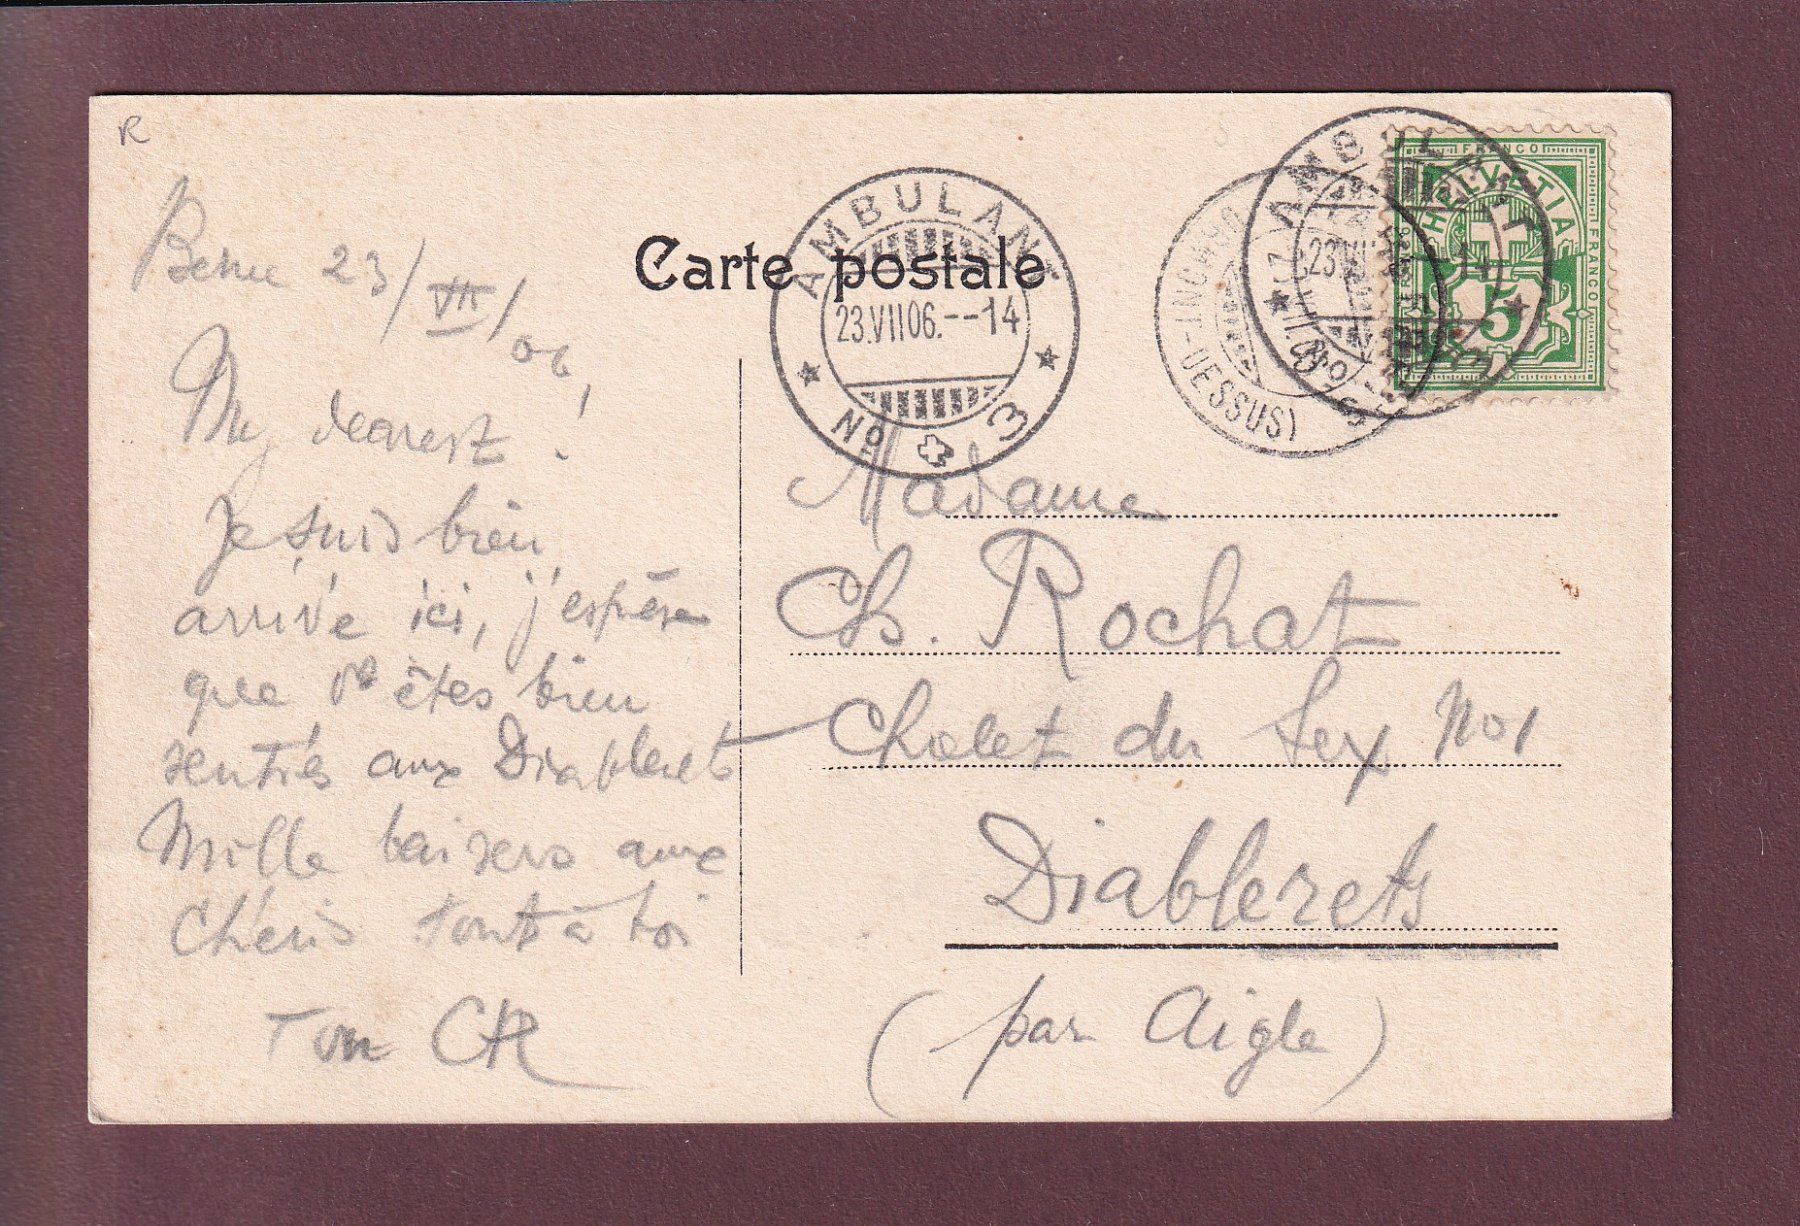 R
Carte postale
AMBULANT
23.VII06.--14
No 3
AMBULANT
23.VII
14
No 3
DESSUS)
FRANCO
HELVETIA
FRANCO
5
Berne 23/VII/06
My dearest!
Je suis bien
arrivé ici, j'espère
que vs êtes bien
rentrés aux Diablerets
Mille baisers aux
Chéris tout à toi
Ton CR
Madame
Ch. Rochat
Chalet du Sex No 1
Diablerets
(par Aigle)